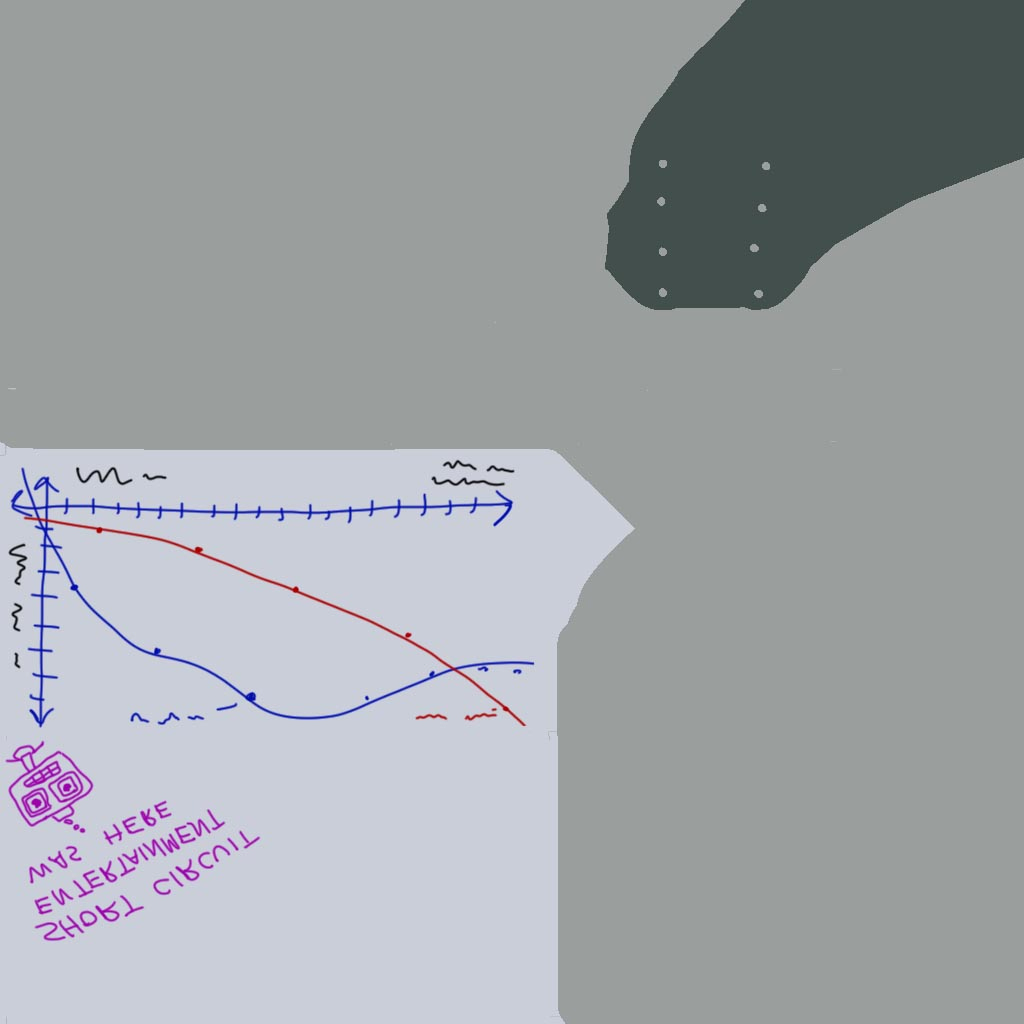 SHORT CIRCUIT
ENTERTAINMENT
WAS HERE